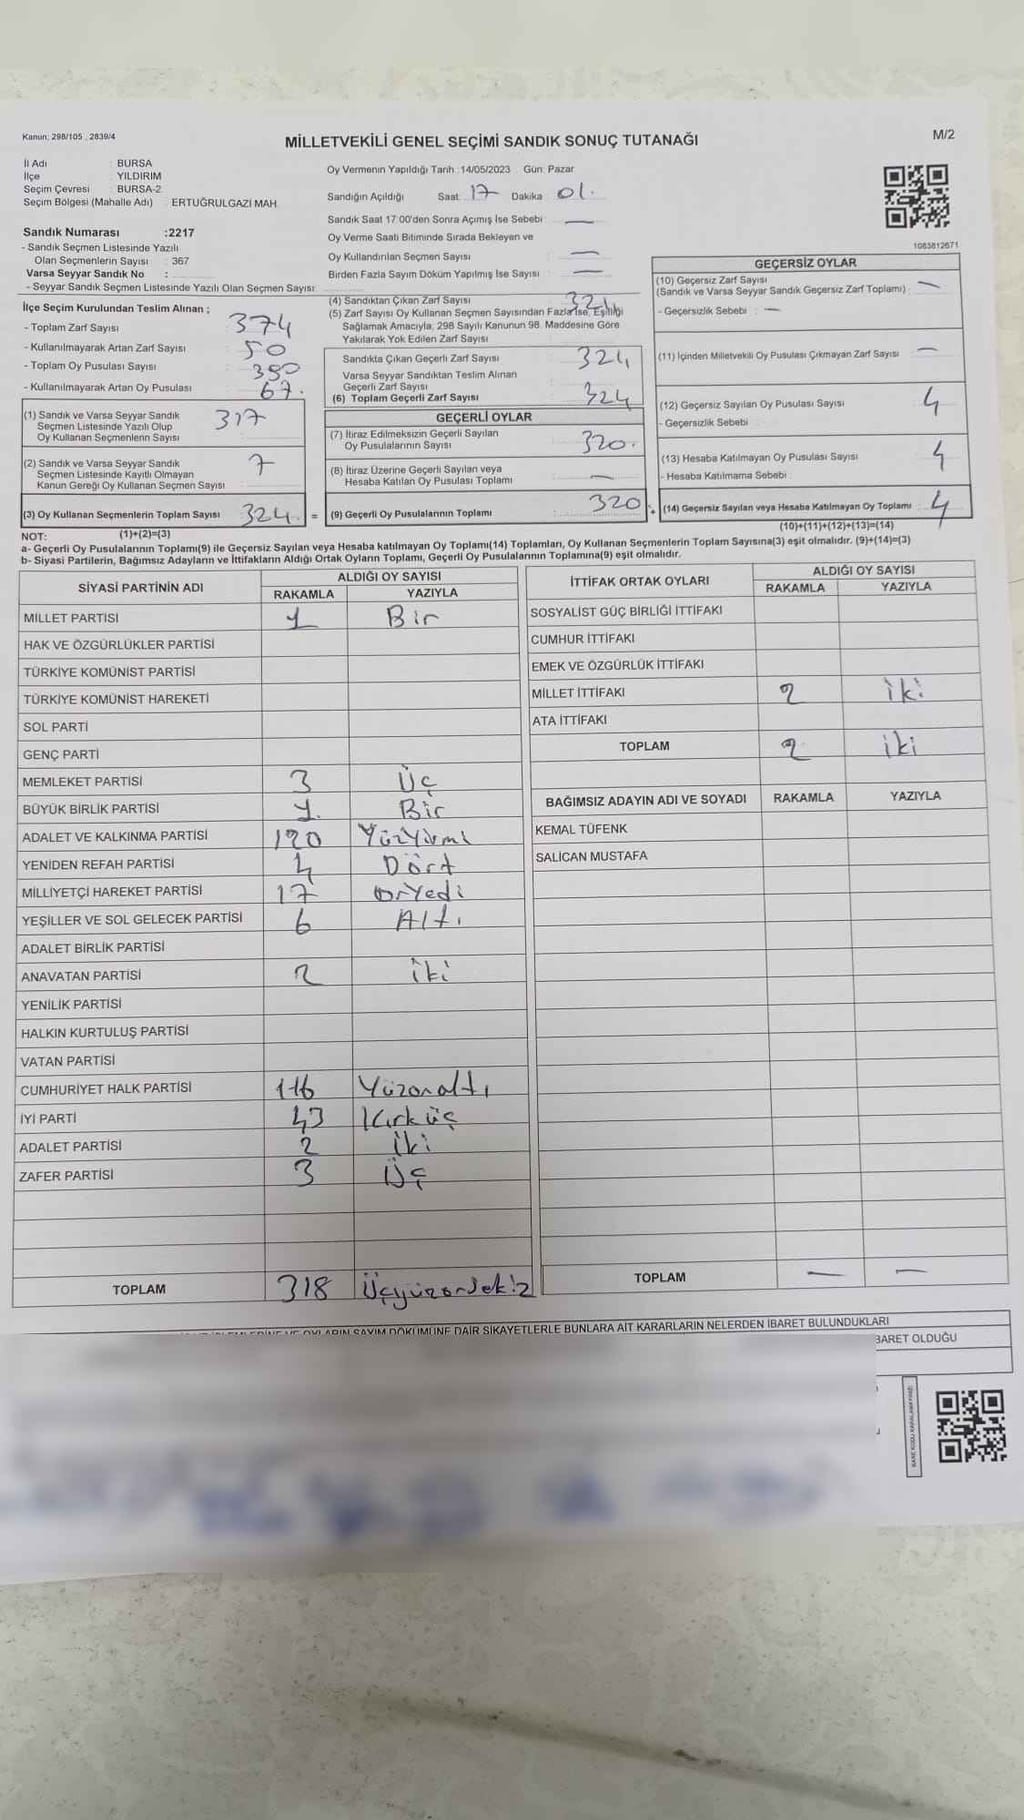 Kanun: 298/105 , 2839/4
MİLLETVEKİLİ GENEL SEÇİMİ SANDIK SONUÇ TUTANAĞI
M/2
İl Adı : BURSA
İlçe YILDIRIM
Seçim Çevresi : BURSA-2
Seçim Bölgesi (Mahalle Adı) ERTUĞRULGAZİ MAH.
Sandık Numarası :2217
- Sandık Seçmen Listesinde Yazılı
Olan Seçmenlerin Sayısı : 367
Varsa Seyyar Sandık No :
- Seyyar Sandık Seçmen Listesinde Yazılı Olan Seçmen Sayısı :
İlçe Seçim Kurulundan Teslim Alınan ;
- Toplam Zarf Sayısı 374
- Kullanılmayarak Artan Zarf Sayısı 50
- Toplam Oy Pusulası Sayısı
- Kullanılmayarak Artan Oy Pusulası 67.
(1) Sandık ve Varsa Seyyar Sandık 317
Seçmen Listesinde Yazılı Olup
Oy Kullanan Seçmenlerin Sayısı
(2) Sandık ve Varsa Seyyar Sandık 7
Seçmen Listesinde Kayıtlı Olmayan
Kanun Gereği Oy Kullanan Seçmen Sayısı
(3) Oy Kullanan Seçmenlerin Toplam Sayısı 324. =
(1)+(2)=(3)
Oy Vermenin Yapıldığı Tarih :14/05/2023 Gün: Pazar
Sandığın Açıldığı Saat: 17 Dakika 01.
Sandık Saat 17:00'den Sonra Açımış İse Sebebi : —
Oy Verme Saati Bitiminde Sırada Bekleyen ve
Oy Kullandırılan Seçmen Sayısı —
Birden Fazla Sayım Döküm Yapılmış İse Sayısı —
(4) Sandıktan Çıkan Zarf Sayısı 324
(5) Zarf Sayısı Oy Kullanan Seçmen Sayısından Fazla İse, Eşitliği
Sağlamak Amacıyla, 298 Sayılı Kanunun 98. Maddesine Göre
Yakılarak Yok Edilen Zarf Sayısı
Sandıkta Çıkan Geçerli Zarf Sayısı 324
Varsa Seyyar Sandıktan Teslim Alınan
Geçerli Zarf Sayısı
(6) Toplam Geçerli Zarf Sayısı 324
GEÇERLİ OYLAR
(7) İtiraz Edilmeksizin Geçerli Sayılan 320.
Oy Pusulalarının Sayısı
(8) İtiraz Üzerine Geçerli Sayılan veya
Hesaba Katılan Oy Pusulası Toplamı —
(9) Geçerli Oy Pusulalarının Toplamı 320
1083812671
GEÇERSİZ OYLAR
(10) Geçersiz Zarf Sayısı —
(Sandık ve Varsa Seyyar Sandık Geçersiz Zarf Toplamı) :
- Geçersizlik Sebebi : —
(11) İçinden Milletvekili Oy Pusulası Çıkmayan Zarf Sayısı —
(12) Geçersiz Sayılan Oy Pusulası Sayısı 4
- Geçersizlik Sebebi
(13) Hesaba Katılmayan Oy Pusulası Sayısı 4
- Hesaba Katılmama Sebebi
(14) Geçersiz Sayılan veya Hesaba Katılmayan Oy Toplamı : 4
(10)+(11)+(12)+(13)=(14)
NOT:
a- Geçerli Oy Pusulalarının Toplamı(9) ile Geçersiz Sayılan veya Hesaba katılmayan Oy Toplamı(14) Toplamları, Oy Kullanan Seçmenlerin Toplam Sayısına(3) eşit olmalıdır. (9)+(14)=(3)
b- Siyasi Partilerin, Bağımsız Adayların ve İttifakların Aldığı Ortak Oyların Toplamı, Geçerli Oy Pusulalarının Toplamına(9) eşit olmalıdır.
SİYASİ PARTİNİN ADI ALDIĞI OY SAYISI
RAKAMLA YAZIYLA
MİLLET PARTİSİ 1 Bir
HAK VE ÖZGÜRLÜKLER PARTİSİ
TÜRKİYE KOMÜNİST PARTİSİ
TÜRKİYE KOMÜNİST HAREKETİ
SOL PARTİ
GENÇ PARTİ
MEMLEKET PARTİSİ 3 Üç
BÜYÜK BİRLİK PARTİSİ 1. Bir
ADALET VE KALKINMA PARTİSİ 120 Yüzyirmi
YENİDEN REFAH PARTİSİ 4 Dört
MİLLİYETÇİ HAREKET PARTİSİ 17 onYedi
YEŞİLLER VE SOL GELECEK PARTİSİ 6 Altı
ADALET BİRLİK PARTİSİ
ANAVATAN PARTİSİ 2 iki
YENİLİK PARTİSİ
HALKIN KURTULUŞ PARTİSİ
VATAN PARTİSİ
CUMHURİYET HALK PARTİSİ 116 Yüzonaltı
İYİ PARTİ 43 Kırküç
ADALET PARTİSİ 2 iki
ZAFER PARTİSİ 3 Üç
TOPLAM 318 Üçyüzonsekiz
İTTİFAK ORTAK OYLARI ALDIĞI OY SAYISI
RAKAMLA YAZIYLA
SOSYALİST GÜÇ BİRLİĞİ İTTİFAKI
CUMHUR İTTİFAKI
EMEK VE ÖZGÜRLÜK İTTİFAKI
MİLLET İTTİFAKI 2 iki
ATA İTTİFAKI
TOPLAM 2 iki
BAĞIMSIZ ADAYIN ADI VE SOYADI RAKAMLA YAZIYLA
KEMAL TÜFENK
SALİCAN MUSTAFA
TOPLAM — —
OYLARIN SAYIM DÖKÜMÜNE DAİR ŞİKAYETLERLE BUNLARA AİT KARARLARIN NELERDEN İBARET BULUNDUKLARI
BARET OLDUĞU